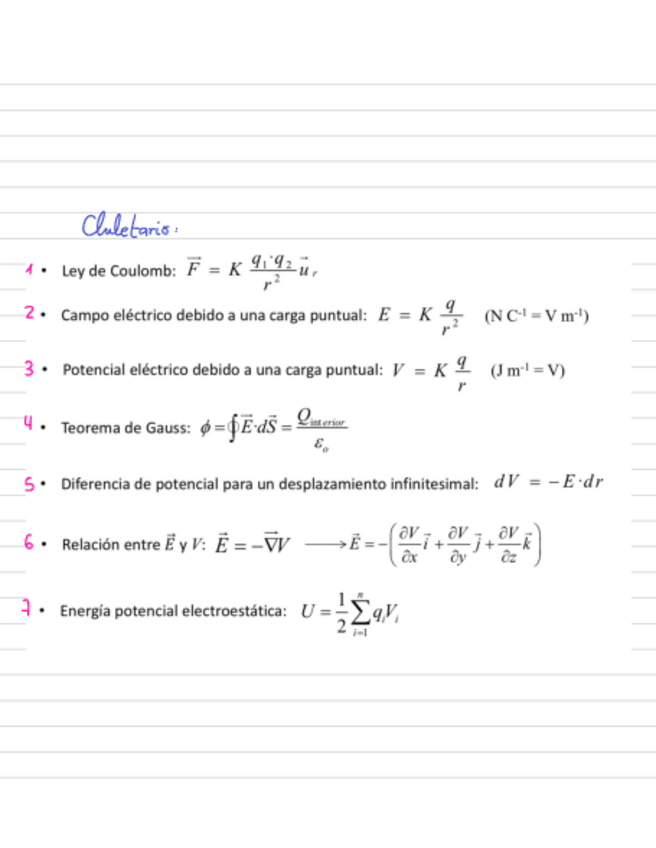 Chuletario:
1 • Ley de Coulomb: $\vec{F} = K \frac{q_1 \cdot q_2}{r^2} \vec{u}_r$
2 • Campo eléctrico debido a una carga puntual: $E = K \frac{q}{r^2}$ (N C⁻¹ = V m⁻¹)
3 • Potencial eléctrico debido a una carga puntual: $V = K \frac{q}{r}$ (J m⁻¹ = V)
4 • Teorema de Gauss: $\phi = \oint \vec{E} \cdot d\vec{S} = \frac{Q_{interior}}{\varepsilon_o}$
5 • Diferencia de potencial para un desplazamiento infinitesimal: $dV = -E \cdot dr$
6 • Relación entre $\vec{E}$ y V: $\vec{E} = -\vec{\nabla}V \longrightarrow \vec{E} = -\left(\frac{\partial V}{\partial x}\vec{i} + \frac{\partial V}{\partial y}\vec{j} + \frac{\partial V}{\partial z}\vec{k}\right)$
7 • Energía potencial electroestática: $U = \frac{1}{2}\sum_{i=1}^{n} q_i V_i$